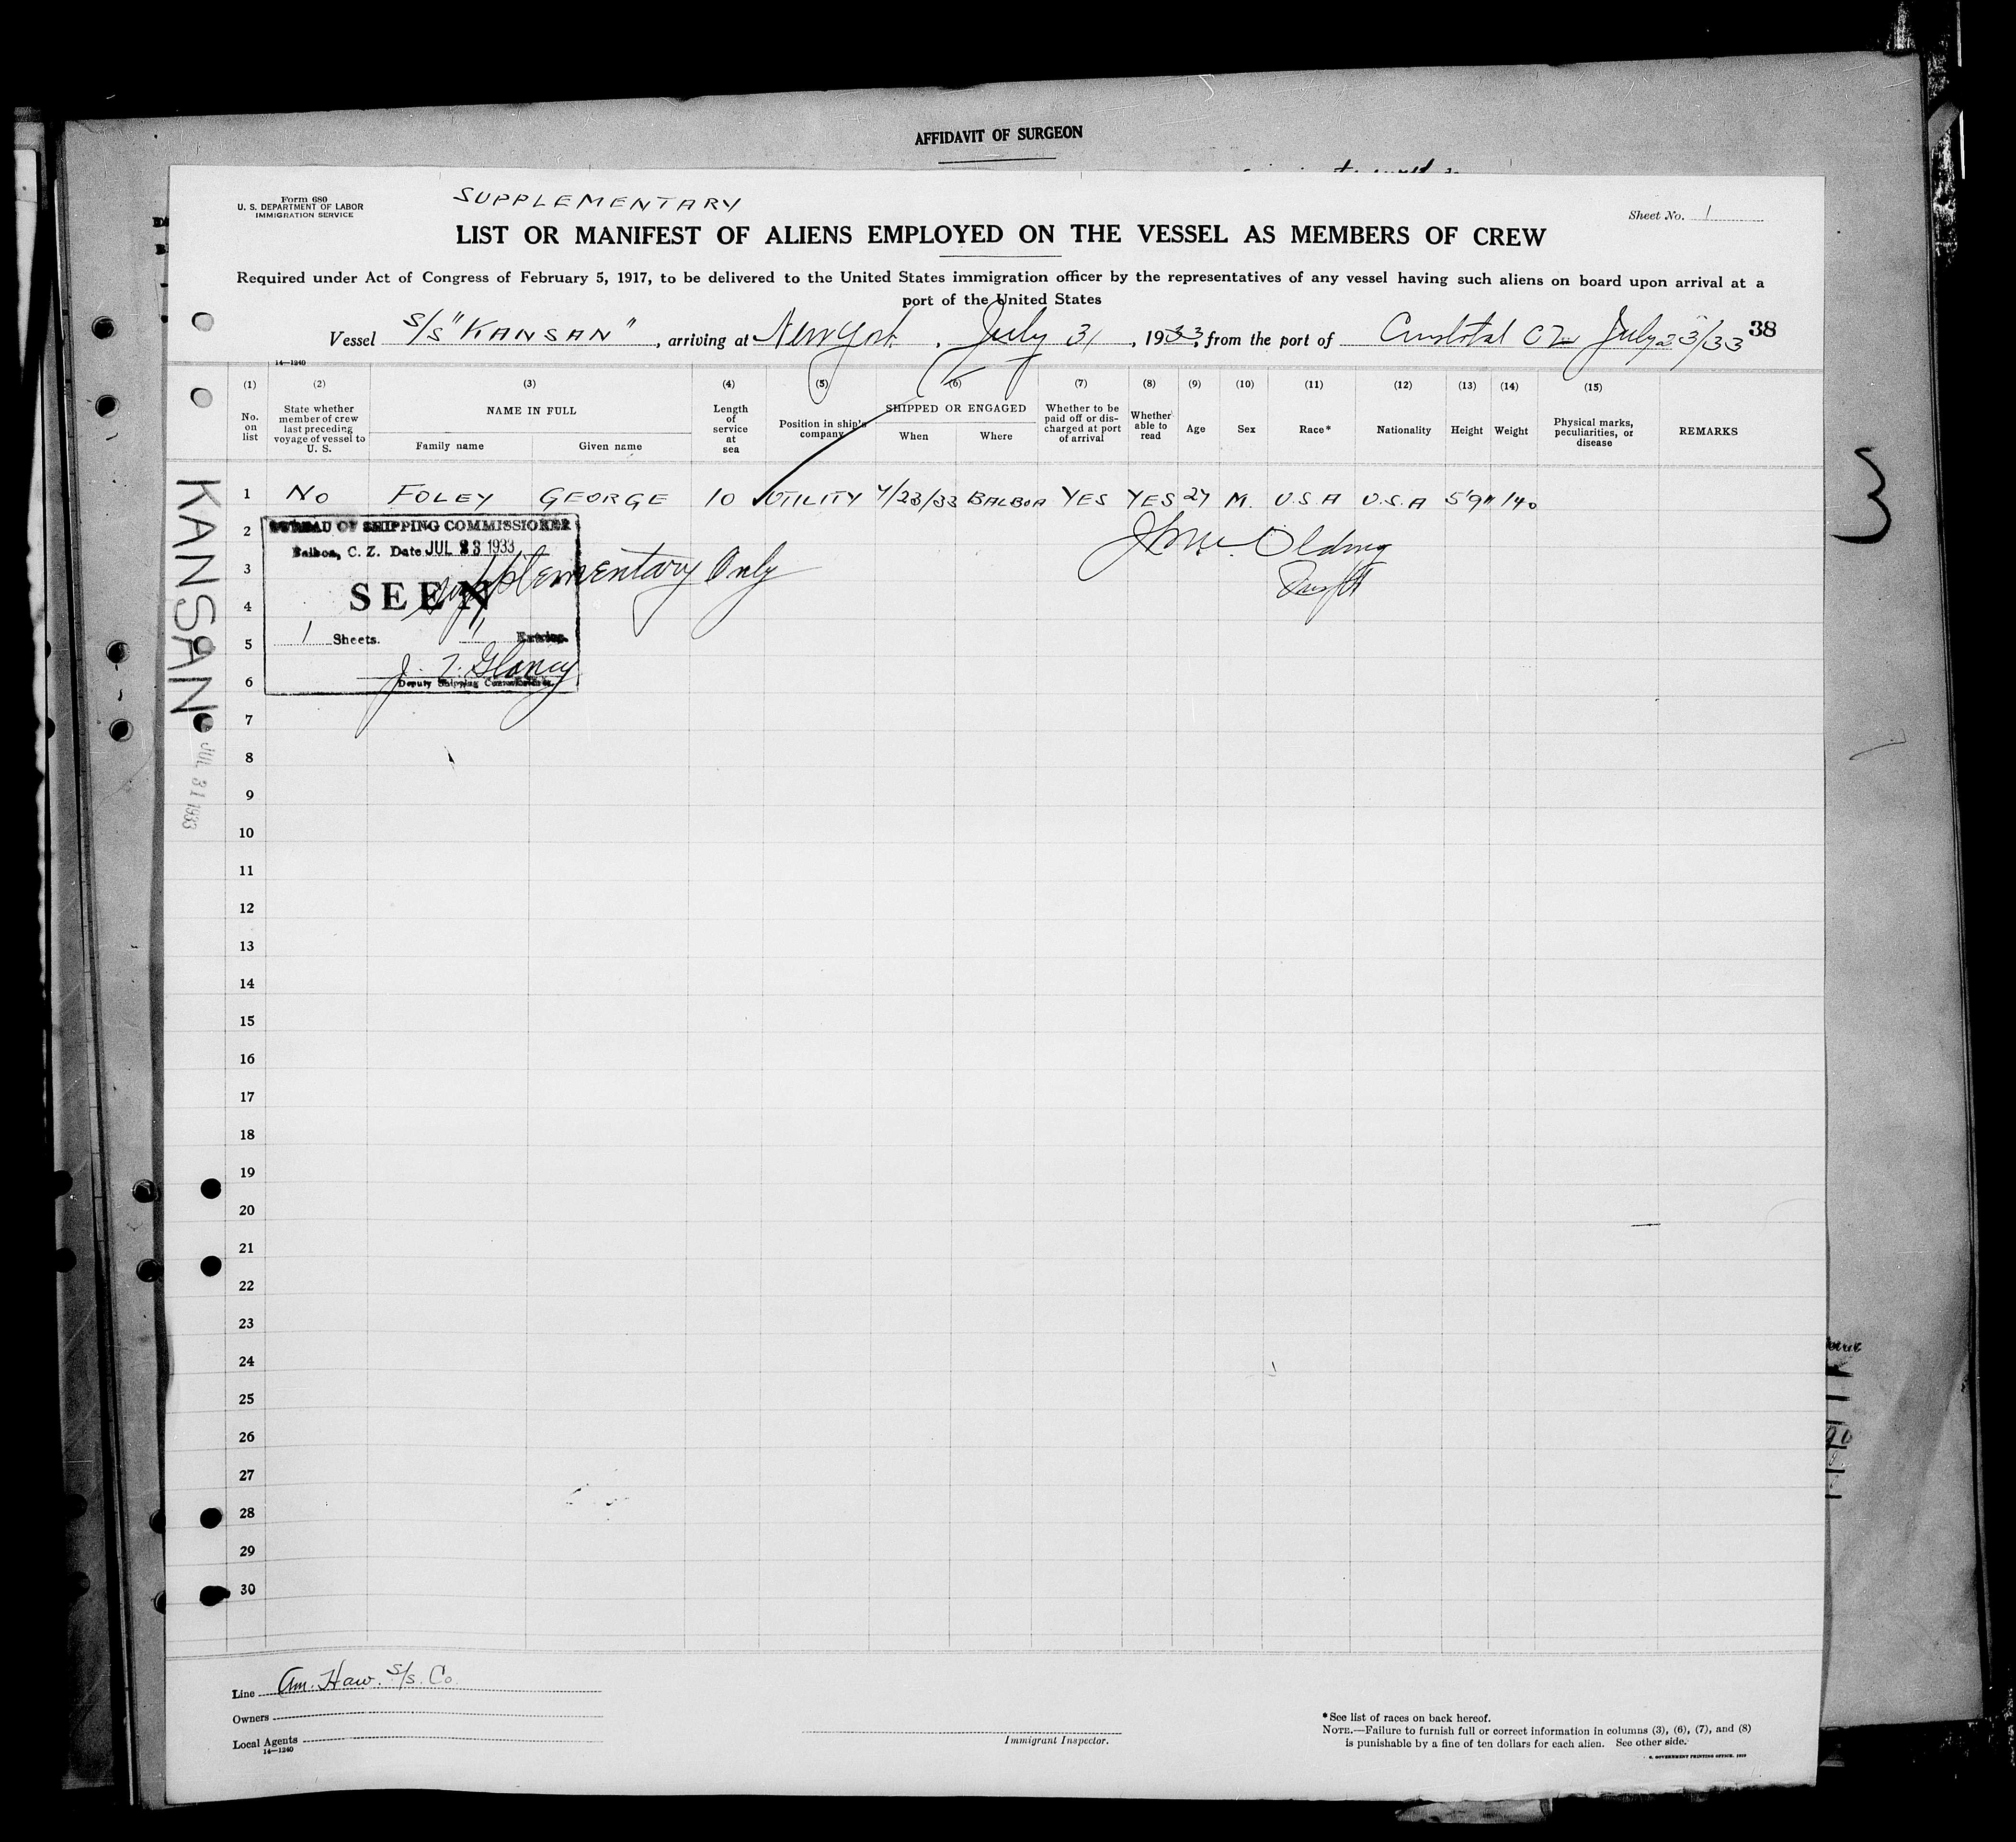 AFFIDAVIT OF SURGEON
Form 680
U. S. DEPARTMENT OF LABOR
IMMIGRATION SERVICE
SUPPLEMENTARY
Sheet No. 1
LIST OR MANIFEST OF ALIENS EMPLOYED ON THE VESSEL AS MEMBERS OF CREW
Required under Act of Congress of February 5, 1917, to be delivered to the United States immigration officer by the representatives of any vessel having such aliens on board upon arrival at a
port of the United States
Vessel S/S "KANSAN", arriving at New York, July 31, 1933, from the port of Cristobal CZ July 23/33 38
14—1240
(1) (2) (3) (4) (5) (6) (7) (8) (9) (10) (11) (12) (13) (14) (15)
No. on list
State whether member of crew last preceding voyage of vessel to U. S.
NAME IN FULL
Family name
Given name
Length of service at sea
Position in ship's company
SHIPPED OR ENGAGED
When
Where
Whether to be paid off or discharged at port of arrival
Whether able to read
Age
Sex
Race*
Nationality
Height
Weight
Physical marks, peculiarities, or disease
REMARKS
1 NO FOLEY GEORGE 10 UTILITY 7/23/33 BALBOA YES YES 27 M. U.S.A U.S.A 5'9" 140
2
3
4
5
6
7
8
9
10
11
12
13
14
15
16
17
18
19
20
21
22
23
24
25
26
27
28
29
30
BUREAU OF SHIPPING COMMISSIONER
Balboa, C. Z. Date JUL 23 1933
SEEN
Supplementary Only
1 Sheets. 1 Entries.
Deputy Shipping Commissioner.
KANSAN
JUL 31 1933
3
Line Am. Haw. S/S. Co.
Owners
Local Agents
14—1240
Immigrant Inspector.
*See list of races on back hereof.
NOTE.—Failure to furnish full or correct information in columns (3), (6), (7), and (8)
is punishable by a fine of ten dollars for each alien. See other side.